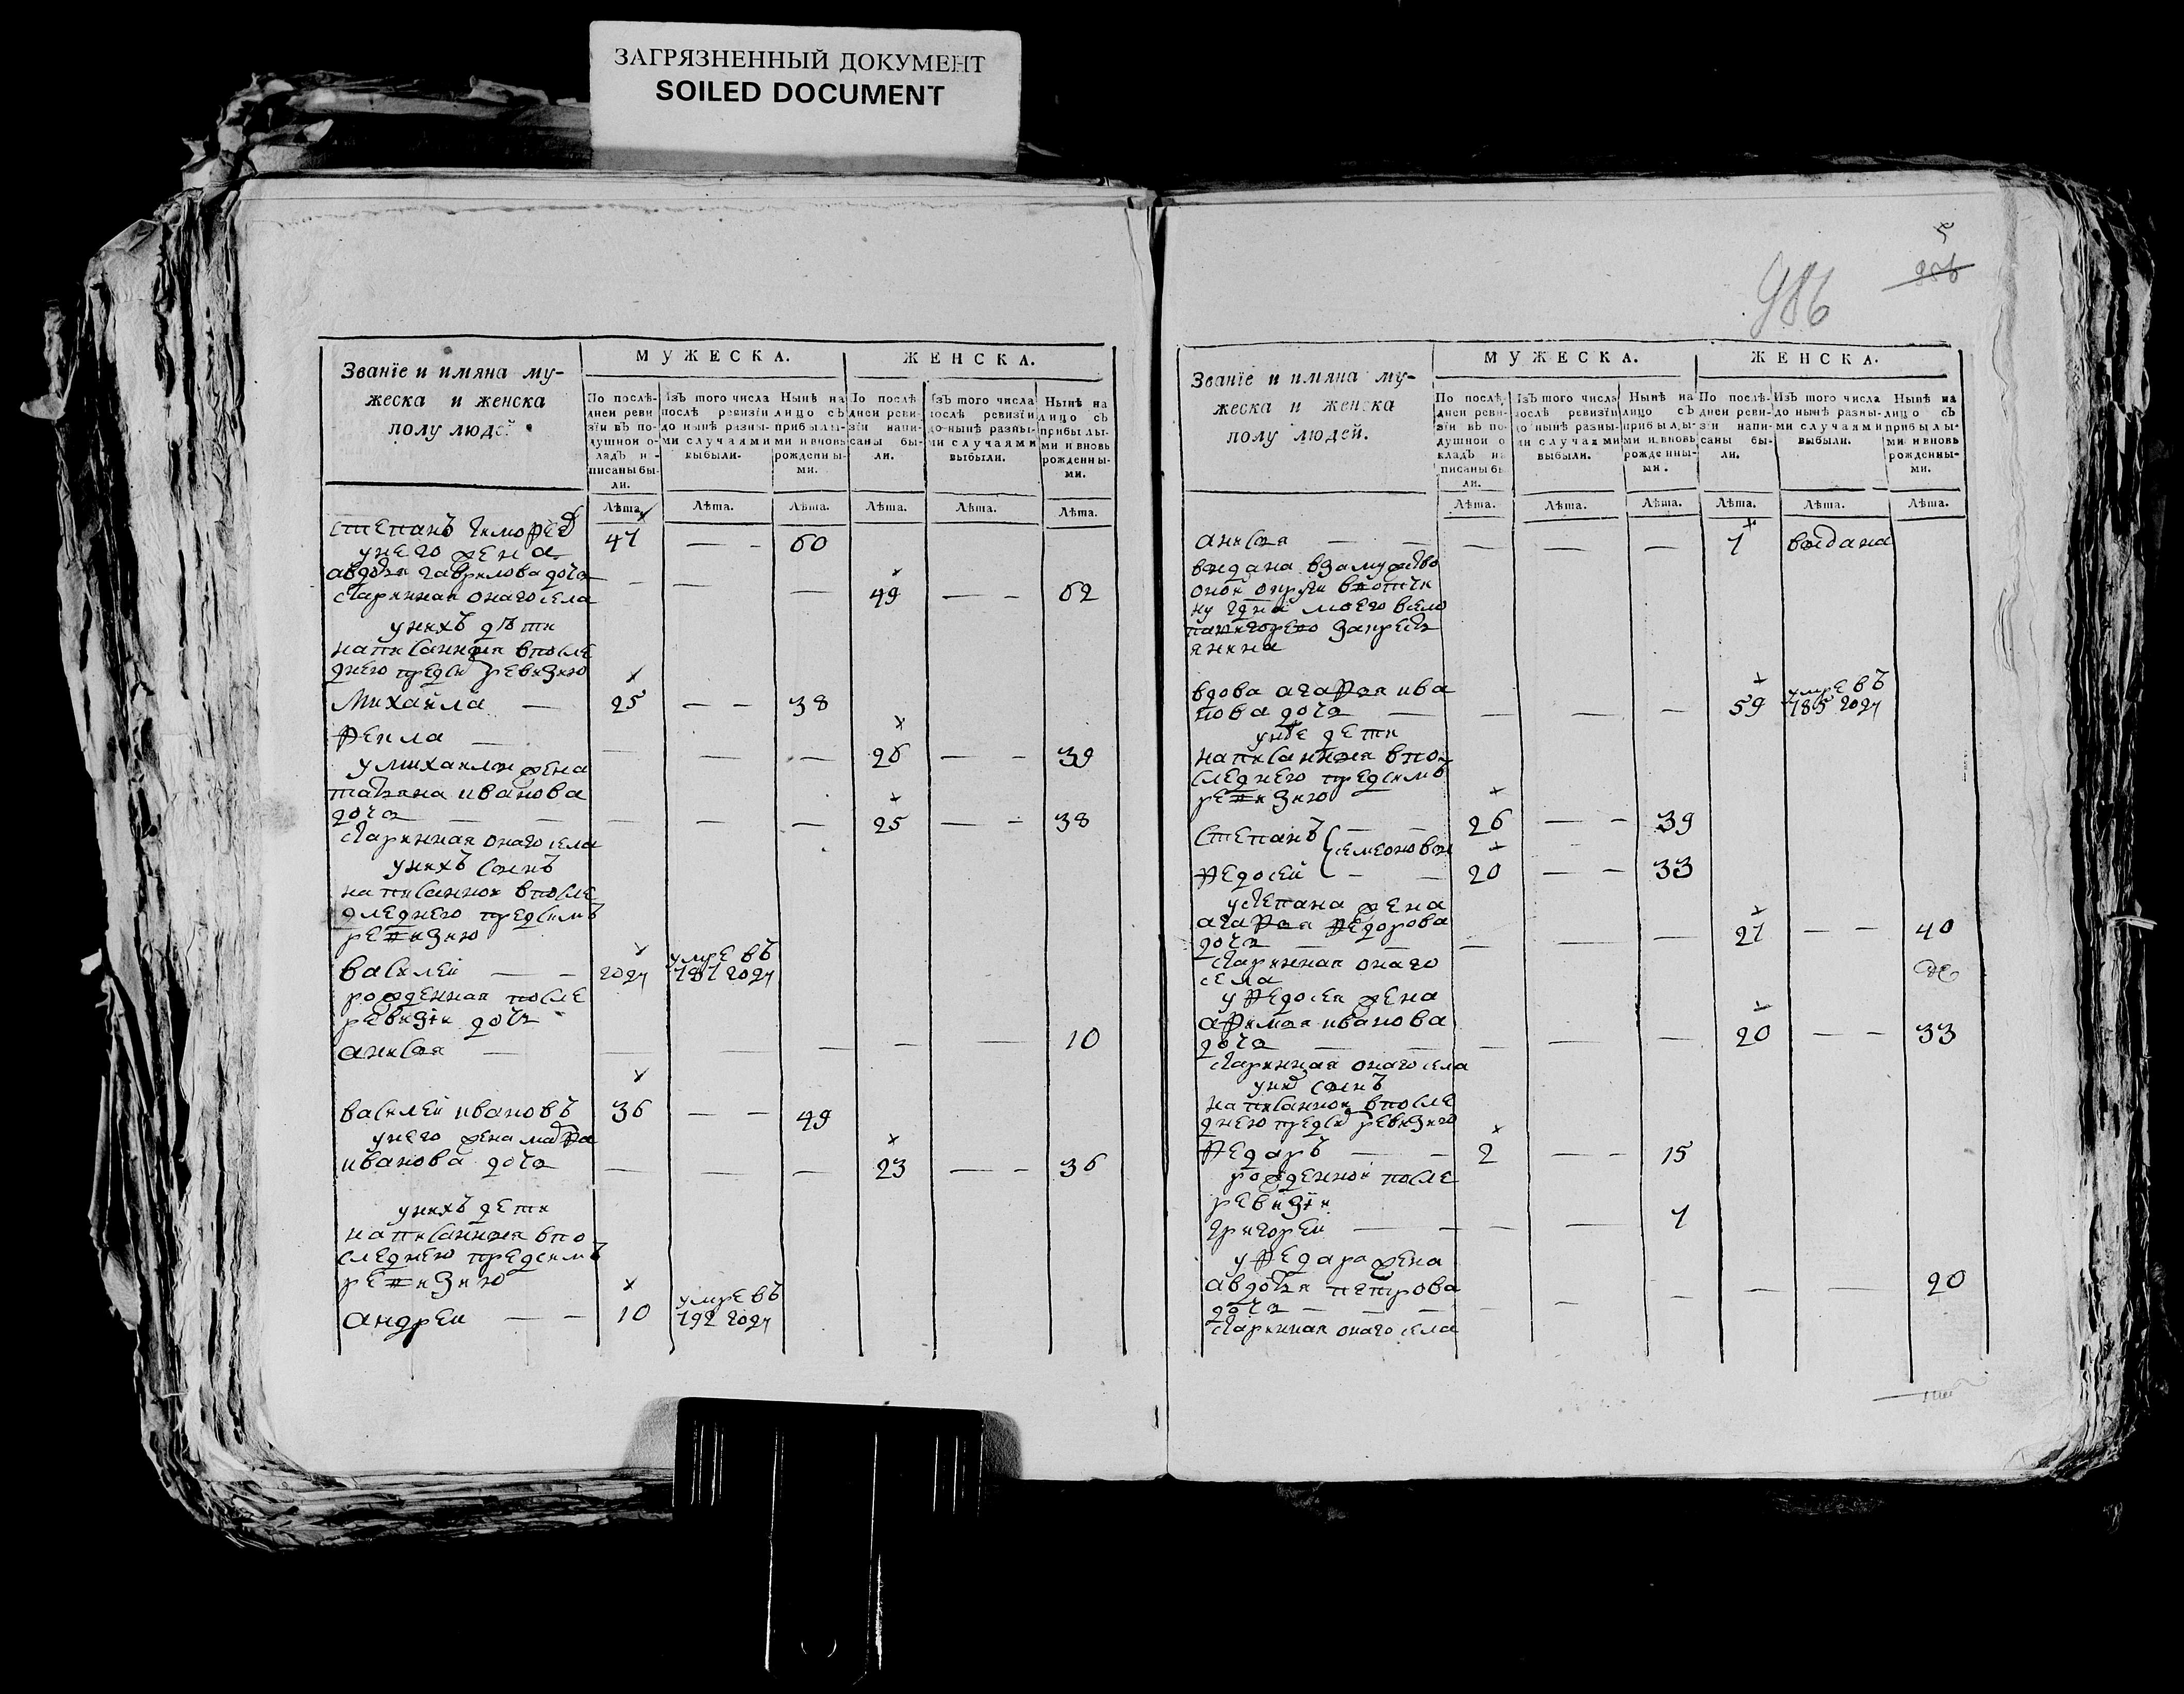 ЗАГРЯЗНЕННЫЙ ДОКУМЕНТ
SOILED DOCUMENT
Званїе и имяна му-
жеска и женска
полу людей
МУЖЕСКА.
ЖЕНСКА.
По послѣ-
дней реви
зїи въ по-
душной о-
кладъ н -
писаны бы-
ли.
Изъ того числа
послѣ ревизїи
до нынѣ разны-
ми случаями
выбыли.
Нынѣ на
лицо съ
прибылы-
ми и вновь
рожденны-
ми.
По послѣ
дней реви-
зїи напи-
саны бы-
ли.
Изъ того числа
послѣ ревизїи
до нынѣ разны-
ми случаями
выбыли.
Нынѣ на
лицо съ
прибылы-
ми и вновь
рожденны-
ми.
Лѣта. Лѣта. Лѣта. Лѣта. Лѣта. Лѣта.
степанъ тимофеѐ 47 — - 60
у него жена
авдотья гаврилова дочь - — — 49 — - 62
старинная онаго села
у нихъ дѣти
написанныя в после
днею пред сим ревизию
Михайла — 25 — — 38
Фекла — — — — 26 — - 39
у михаилы жена
татьяна иванова
дочь — — — — — 25 — - 38
старинная онаго села
у нихъ сынъ
написанной в после
дледнею пред симъ
ревизию
василей — — году умре въ
787 году
рожденная после
ревизїи дочь
анисья — — — — - — 10
василей ивановъ 36 — — 49
у него жена марфа
иванова дочь — — — 23 — - 36
у нихъ дети
написанныя в по
следнею пред симъ
ревизию
андрей — — 10 умре въ
792 году
5
956
986
Званїе и имяна му-
жеска и женска
полу людей.
МУЖЕСКА.
ЖЕНСКА.
По послѣ-
дней реви-
зїи въ по-
душной о-
кладъ на
писаны бы
ли.
Изъ того числа
послѣ ревизїи
до нынѣ разны-
ми случаями
выбыли.
Нынѣ на
лицо съ
прибылы-
ми и вновь
рожденны-
ми.
По послѣ-
дней реви-
зїи напи-
саны бы-
ли.
Изъ того числа
до нынѣ разны-
ми случаями
выбыли.
Нынѣ на
лицо съ
прибылы-
ми и вновь
рожденны-
ми.
Лѣта. Лѣта. Лѣта. Лѣта. Лѣта. Лѣта.
анисья — — — — — 7 выдана
выдана в замужство
оной округи в вотчин
ну моего в село
за кресть
янина
вдова агафья ива
нова дочь — — — — 59 умре въ
785 году
у нее дети
написанныя в по-
следнею пред симъ
ревизию
степанъ — — 26 — - 39
семеновы
федосей - — 20 — - 33
у степана жена
агафья федорова
дочь — — — — — 27 — — 40
старинная онаго
села
у федосея жена
афимья иванова
дочь — — — — — 20 — — 33
старинная онаго села
у них сынъ
написанной в после
днею пред сим ревизию
федаръ — — 2 — - 15
рожденной после
ревизїи
григорей — — - — 7
у федара жена
авдотья петрова
дочь — — — - — — — — 20
старинная онаго села